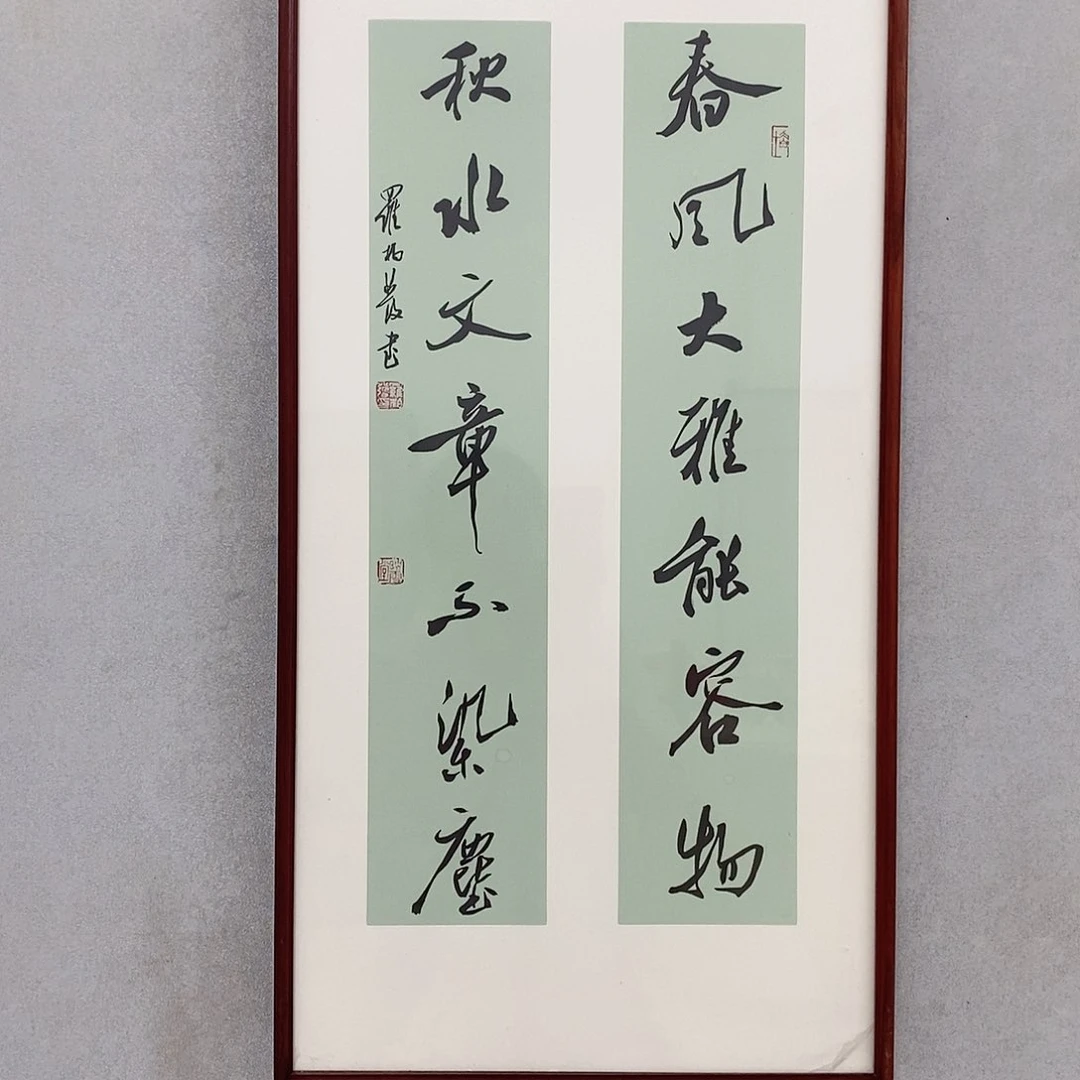 春風大雅能容物
秋水文章不染塵
羅楊書